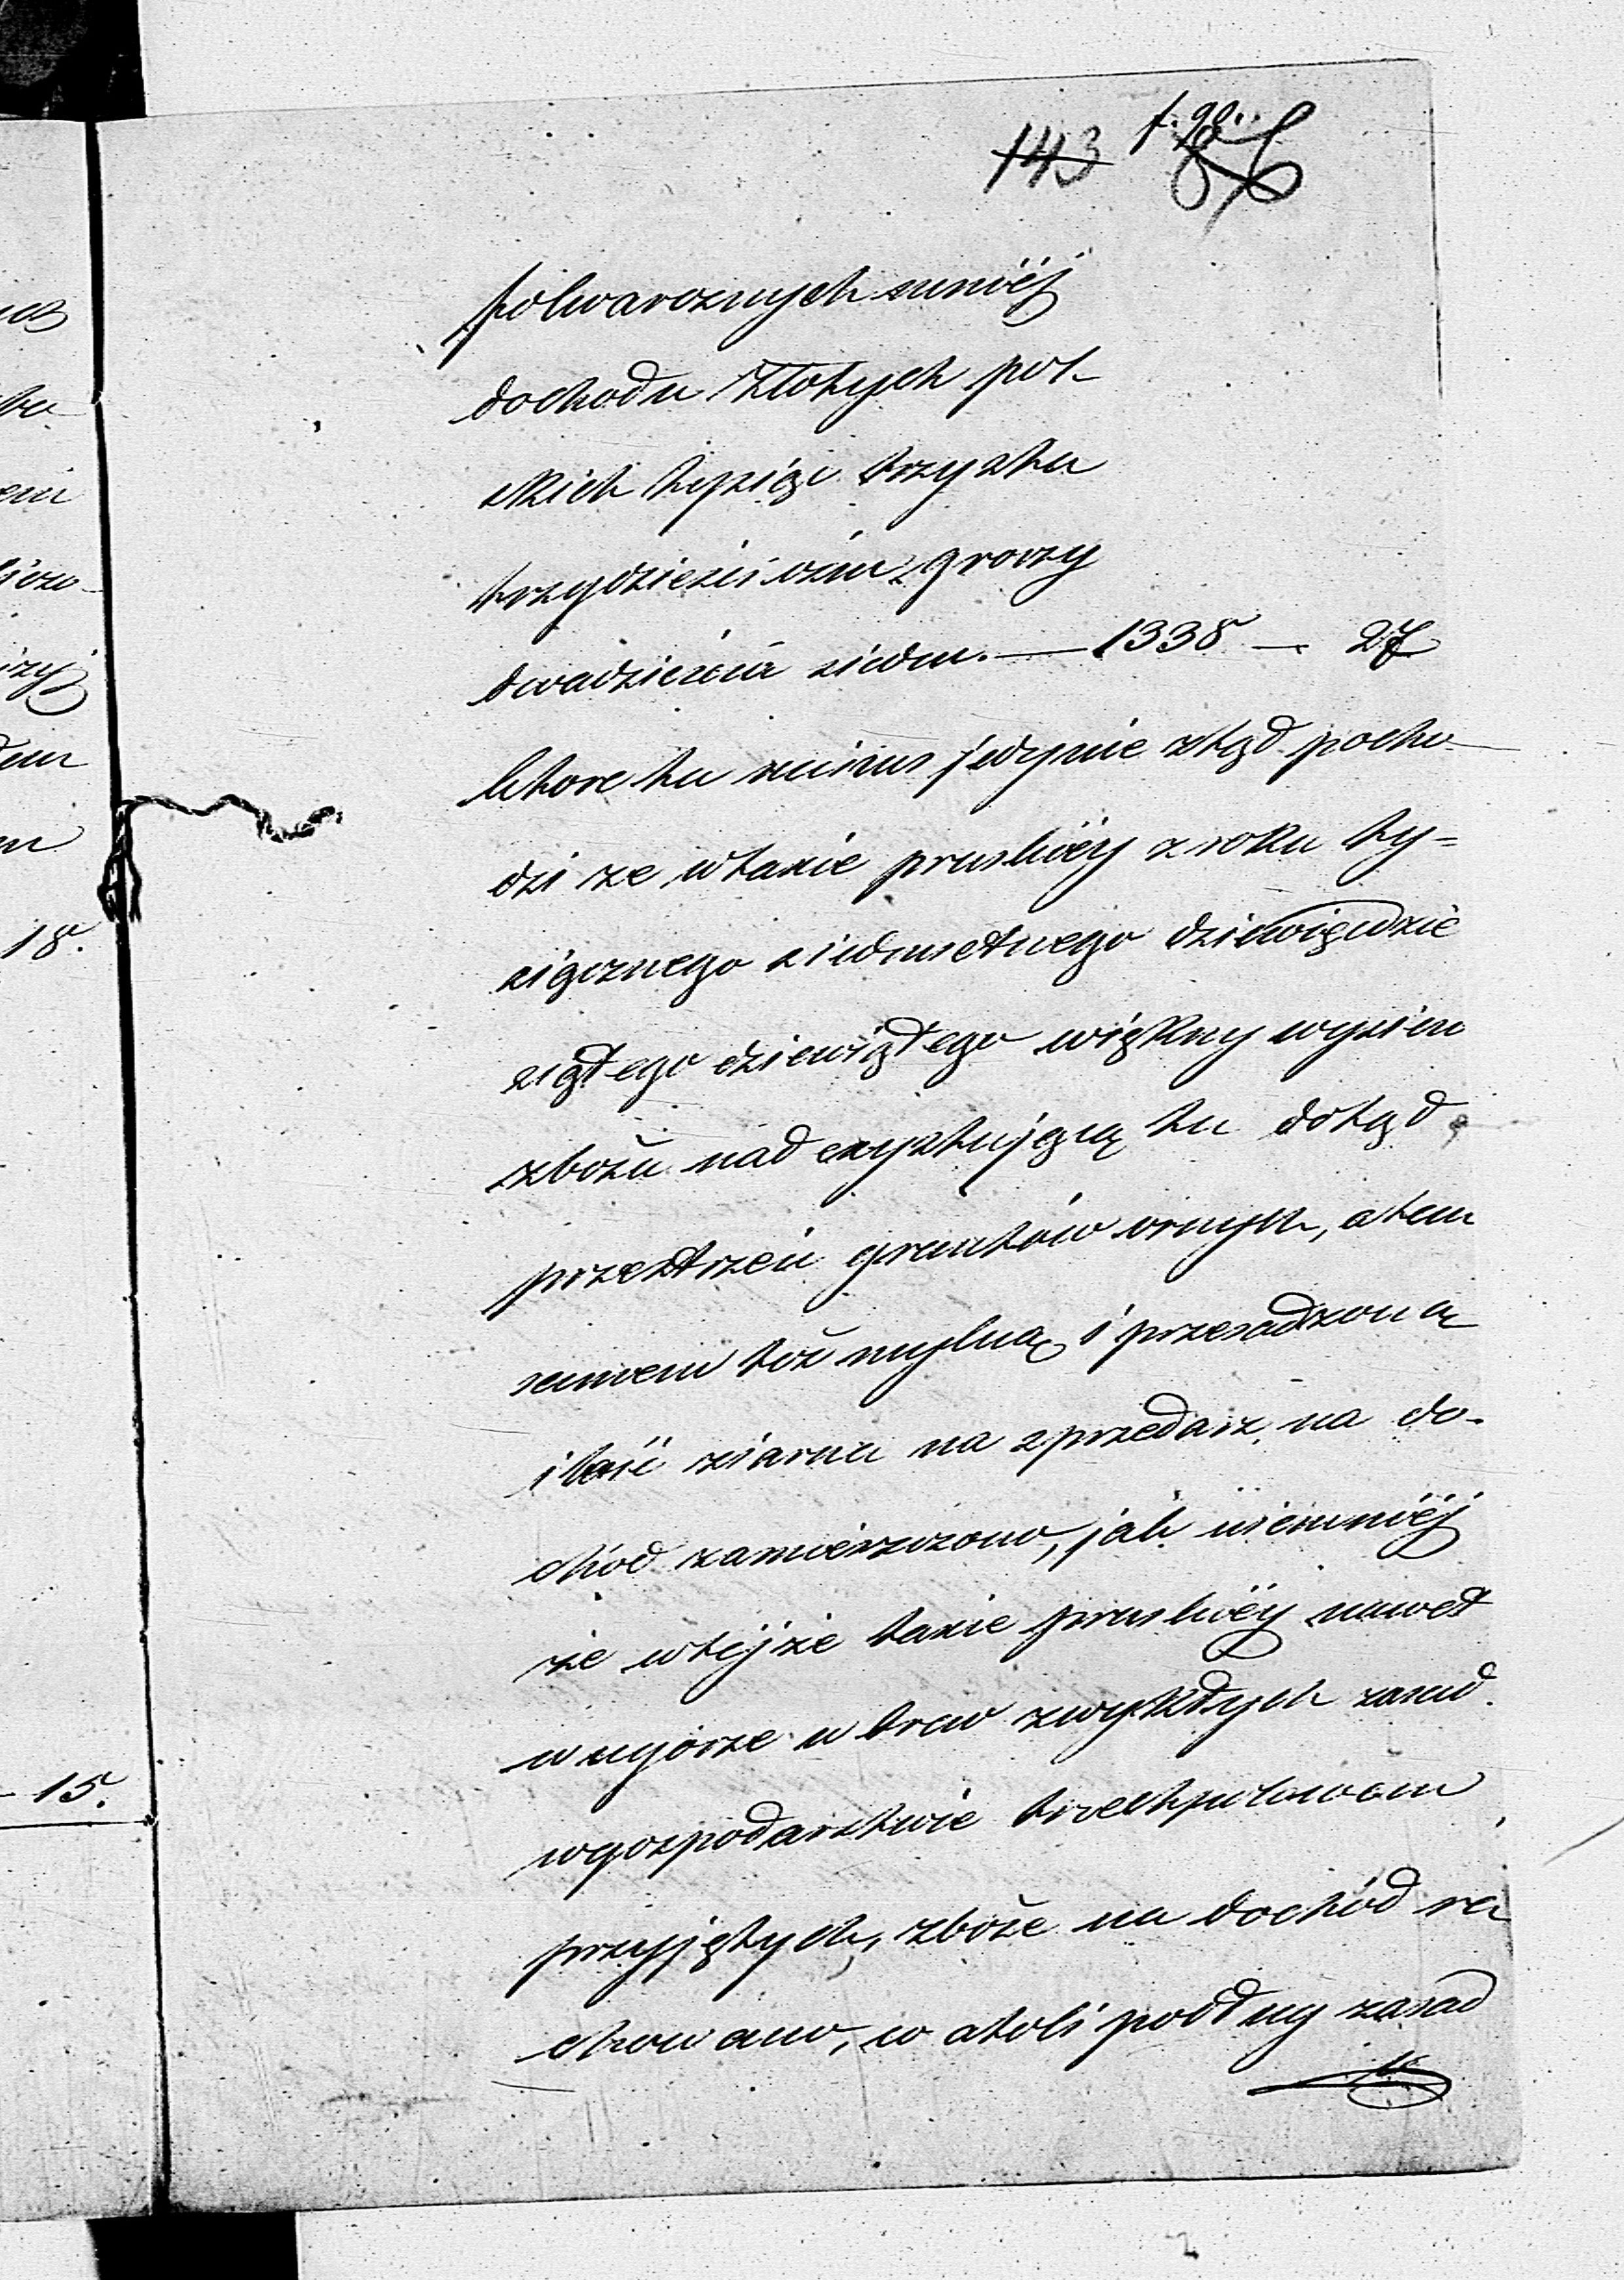 143 f. 90..
folwarcznych mniéj
dochodu Złotych pol-
skich tysiąc trzysta
trzydzieści ośm, groszy
dwadzieścia siedm. — 1338 — 27
ktore tu minus jedynie ztąd pocho-
dzi że w taxie pruskiéy z roku ty=
siącznego siedmsetnego dziewięćdzie
siątego dziewiątego większy wysiew
zboża nad exystującą tu dotąd
przestrzeń gruntów ornych, a tem
samem też mylną i przesadzoną
ilość ziarna na zprzedarz na do-
chod zamierzczono, jak niemniéj
że w tejże taxie pruskiéy nawet
w ugorze wbrew zwykłych zasad
w gospodarstwie trzechpolowem
przyjętych, zboże na dochód ra
chowano, co atoli podług zasad
18.
- 15.